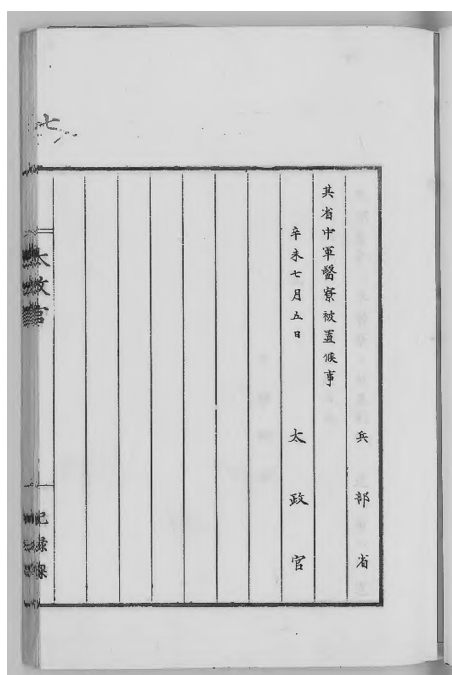 兵部省
其省中軍醫寮被置候事
辛未七月五日
太政官
太政官
記録課
七